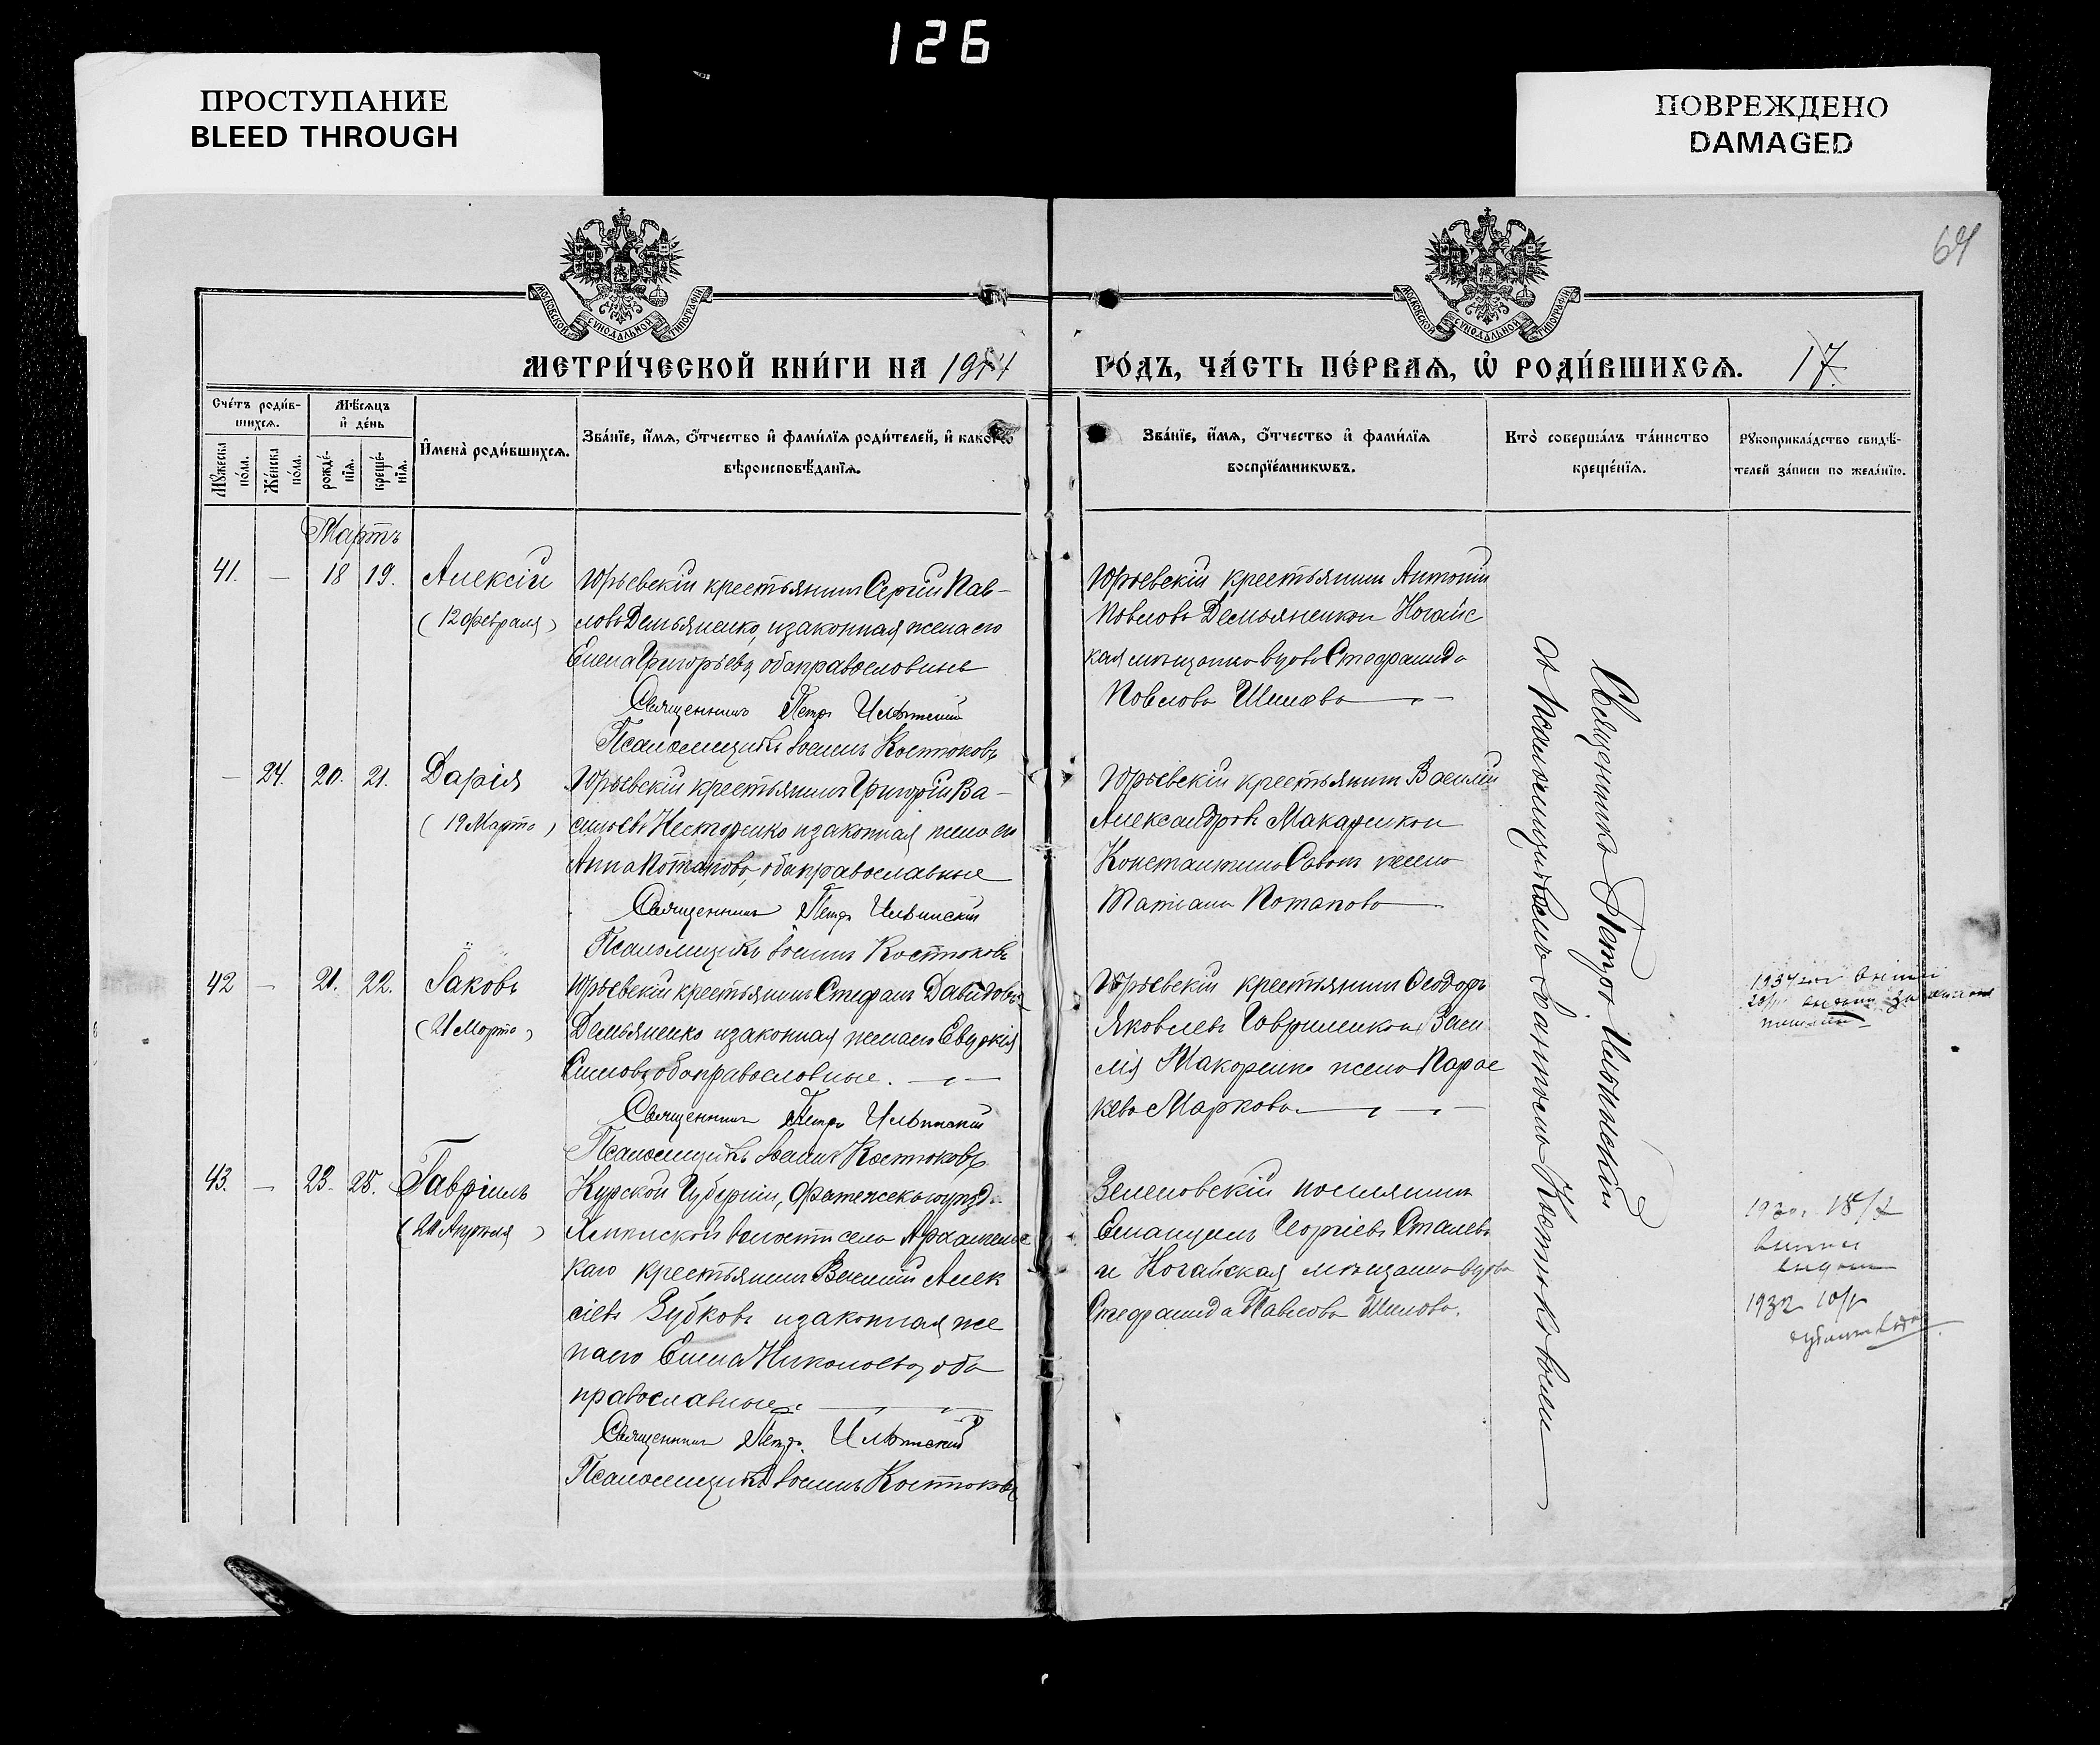 126
ПРОСТУПАНИЕ
BLEED THROUGH
ПОВРЕЖДЕНО
DAMAGED
МОСКОВСКОЙ СѴНОДАЛЬНОЙ ТИПОГРАФІИ
МОСКОВСКОЙ СѴНОДАЛЬНОЙ ТИПОГРАФІИ
МЕТРИ́ЧЕСКОЙ КНИ́ГИ НА 1914
ГО́ДЪ, ЧА́СТЬ ПЕ́РВАѦ, Ѡ҆ РОДИ́ВШИХСѦ. 17
Сче́тъ роди́в-
шихсѧ.
Мѣ́сѧцъ
и҆ де́нь
Мꙋ́жеска
по́ла.
Же́нска
по́ла.
рожде́-
нїѧ.
креще́-
нїѧ.
И҆мена̀ роди́вшихсѧ.
Зва́нїе, и҆́мѧ, ѻ҆́тчество и҆ фами́лїѧ роди́телей, и҆ како́гѡ
вѣроисповѣ́данїѧ.
Зва́нїе, и҆́мѧ, ѻ҆́тчество и҆ фами́лїѧ
воспрїе́мникѡвъ.
Кто̀ соверша́лъ та́инство
креще́нїѧ.
Рꙋкоприкла́дство свидѣ́-
телей за́писи по жела́нїю.
Мартъ
41. — 18 19. Алексій
(12 февраля)
Юрьевскій крестьянинъ Сергій Пав-
ловъ Демьяненко, и законная жена его
Елена Григорьева, оба православные
Священникъ Петръ Ильинскій
Псаломщикъ Костюковъ
Юрьевскій крестьянинъ Антоній
Павловъ Демьяненко и Ногайс
кая мѣщанка вдова Стефанида
Павлова Шилова
— 24. 20. 21. Дарія
(19 Марта)
Юрьевскій крестьянинъ Григорій Ва-
сильевъ Нестеренко и законная жена его
Анна Потапова, оба православные
Священникъ Петръ Ильинскій
Псаломщикъ Костюковъ
Юрьевскій крестьянинъ Василій
Александровъ Макаренко и
Константина жена
Татіана Потапова
42 — 21. 22. Іаковъ
(21 Марта)
Юрьевскій крестьянинъ Стефанъ Давидовъ
Демьяненко и законная жена его Евдокія
оба православные.
Священникъ Петръ Ильинскій
Псаломщикъ Костюковъ
Юрьевскій крестьянинъ Ѳеодоръ
Яковлевъ Гавриленко и Васи
лія Макаренко жена Парас
кева Маркова
43. — 23. 25. Гавріилъ
Курской Губерніи, Фатежскаго уѣзд.
волости села Архангельс
каго крестьянинъ Василій Алек
сіевъ Зубковъ и законная же
на его Елена Николаева, оба
православные.
Священникъ Петръ Ильинскій
Псаломщикъ Костюковъ
Зеленовскій поселянинъ
Емануилъ Георгіевъ Сталевъ
и Ногайская мѣщанка вдова
Стефанида Павлова Шилова.
Священникъ Петръ Ильинскій
съ псаломщикомъ Костюковымъ